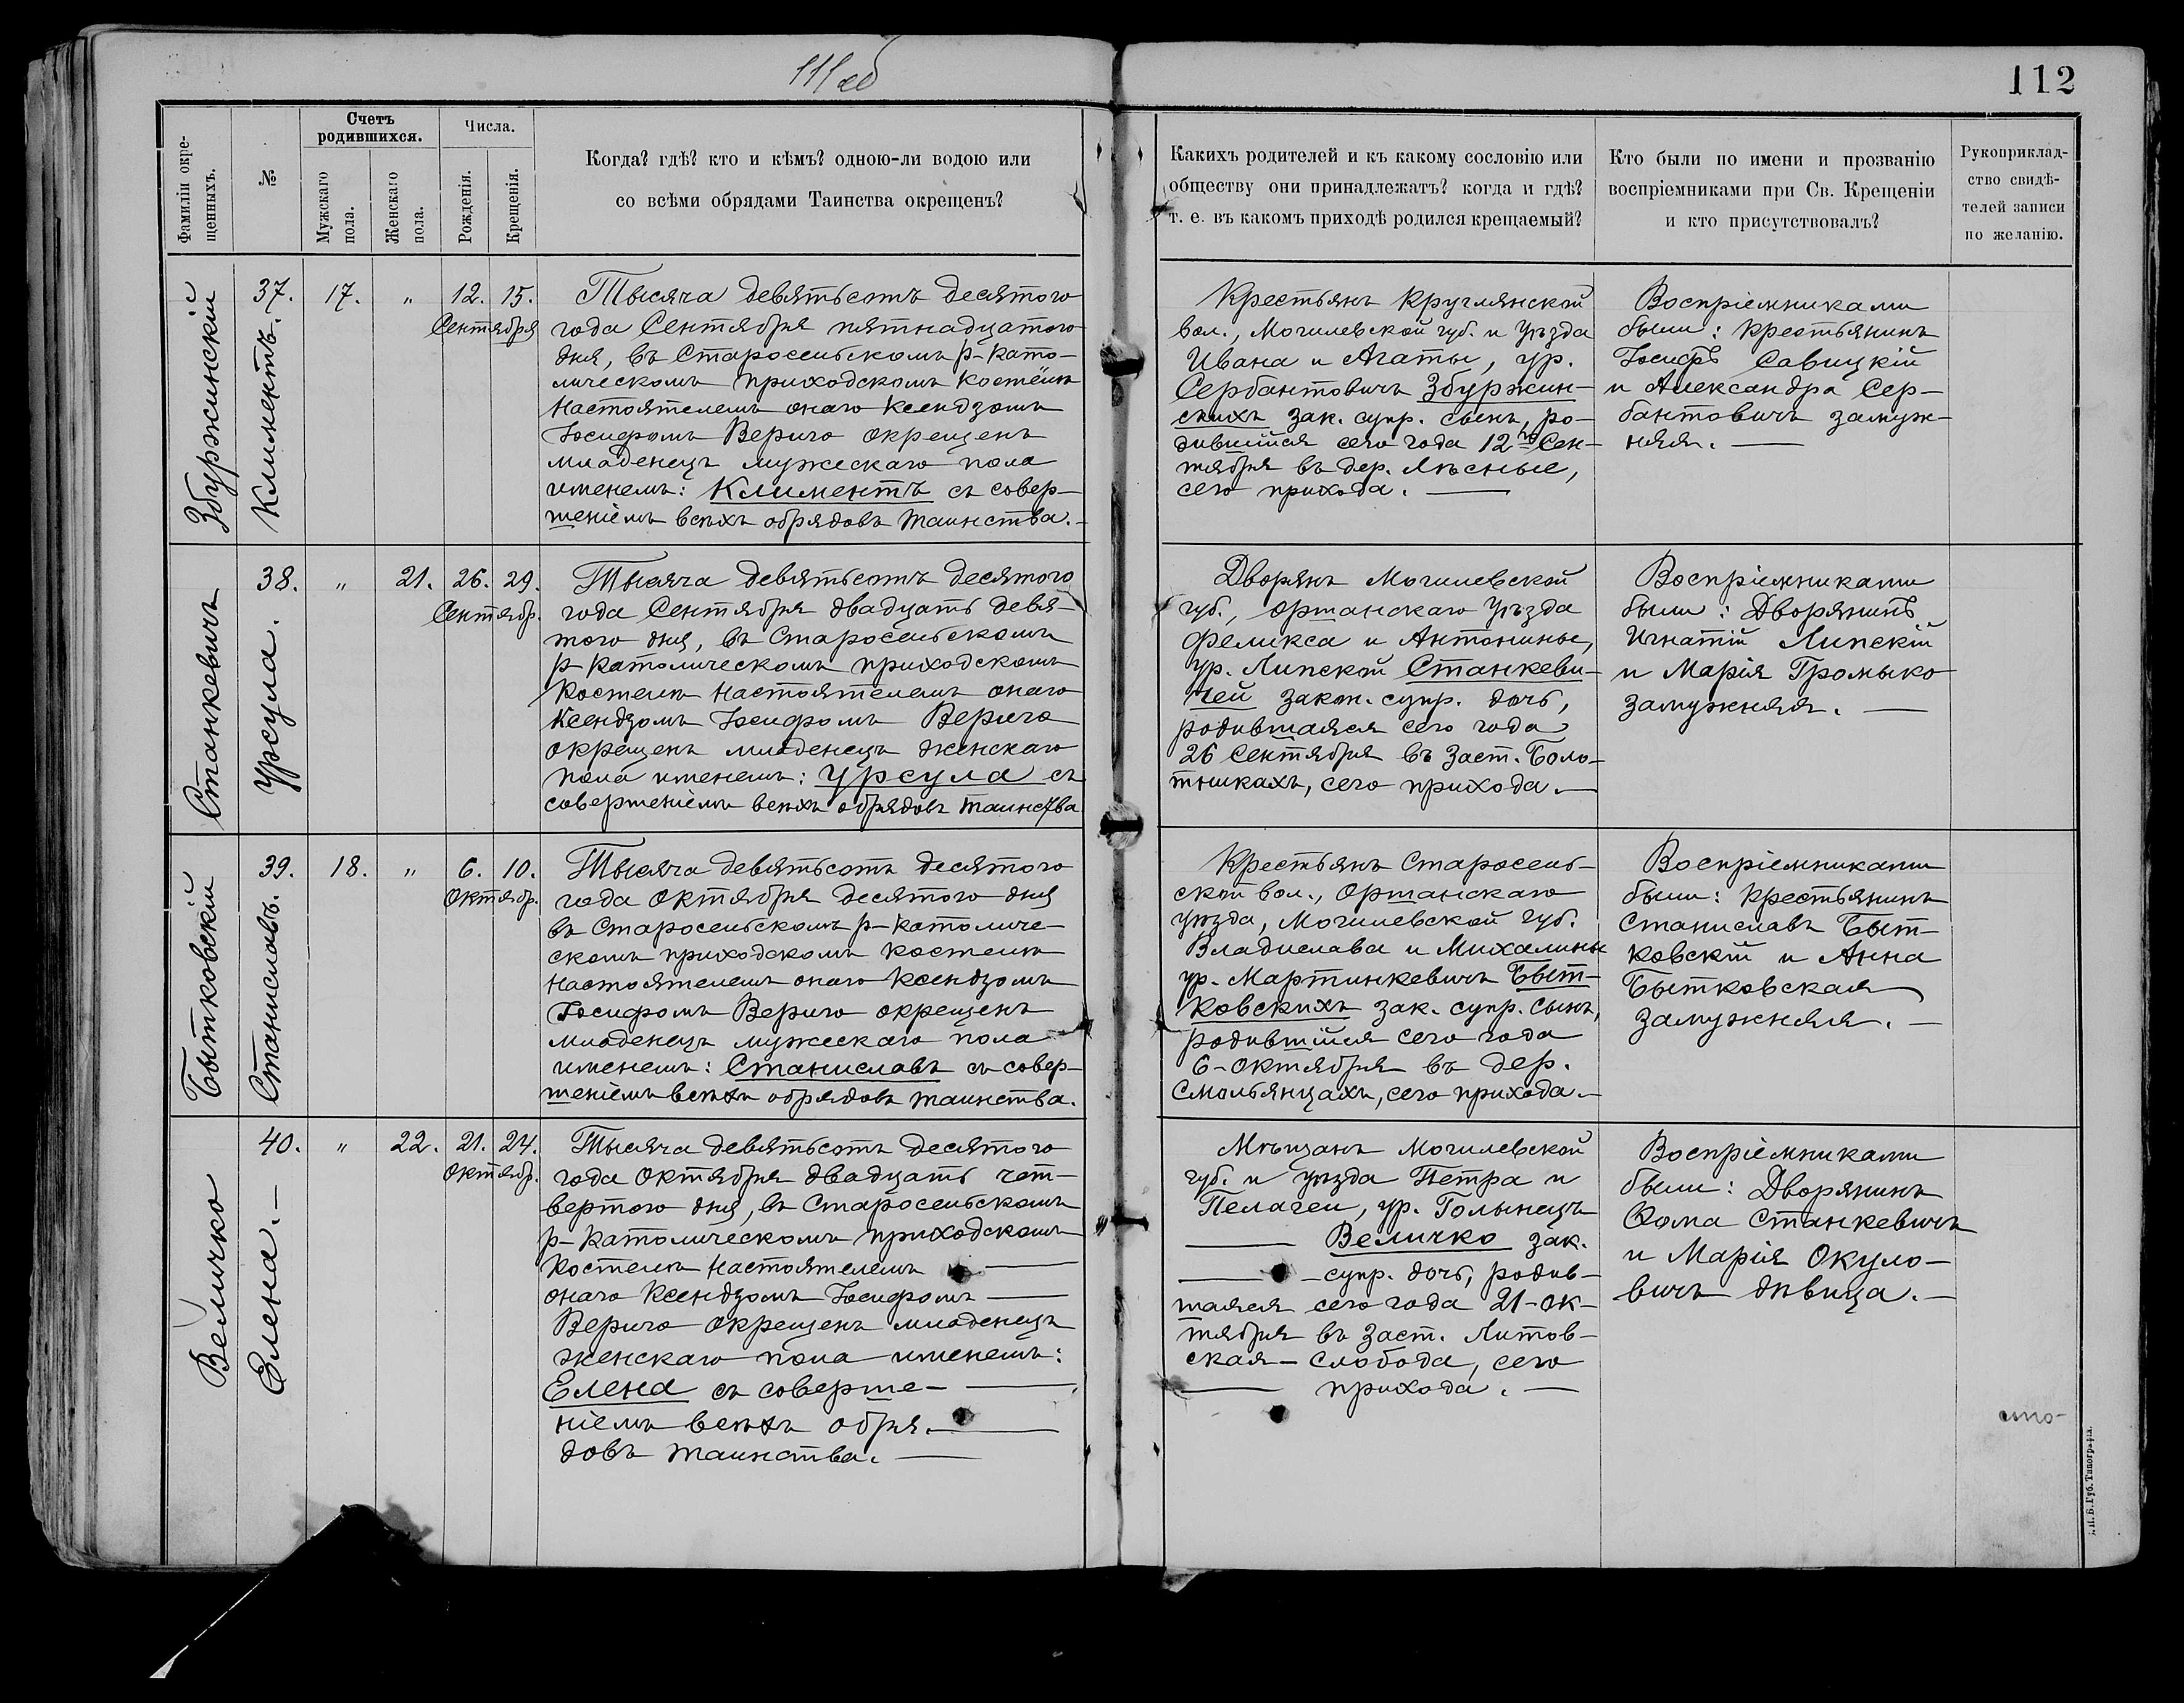 111 об
112
Фамиліи окре-
щенныхъ.
№
Счетъ
родившихся.
Мужскаго
пола.
Женскаго
пола.
Числа.
Рожденія.
Крещенія.
Когда? гдѣ? кто и кѣмъ? одною-ли водою или
со всѣми обрядами Таинства окрещенъ?
Какихъ родителей и къ какому сословію или
обществу они принадлежатъ? когда и гдѣ?
т. е. въ какомъ приходѣ родился крещаемый?
Кто были по имени и прозванію
воспріемниками при Св. Крещеніи
и кто присутствовалъ?
Рукоприклад-
ство свидѣ-
телей записи
по желанію.
Збуржинскій
37.
Климентъ.
17.
"
12. 15.
Сентября
Тысяча девятьсотъ десятого
года Сентября пятнадцатого
дня, въ Старосельскомъ р-като-
лическомъ приходскомъ костёлѣ
Настоятелемъ онаго Ксендзомъ
Іосифомъ Вериго окрещенъ
младенецъ мужескаго пола
именемъ: Климентъ съ совер-
шеніемъ всѣхъ обрядовъ таинства.-
Крестьянъ Круглянской
вол., Могилевской губ. и уѣзда
Ивана и Агаты, ур.
Сербантовичъ Збуржин-
скихъ зак. супр. сынъ, ро-
дившійся сего года 12го Сен-
тября въ дер. Лѣсные,
сего прихода. —
Воспріемниками
были: Крестьянинъ
Іосифъ Савицкій
и Александра Сер-
бантовичъ замуж-
няя. —
Станкевичъ
38.
Урсула.
"
21.
26. 29.
Сентябр.
Тысяча девятьсотъ десятого
года Сентября двадцать девя-
того дня, въ Старосельскомъ
р-католическомъ приходскомъ
Костелѣ Настоятелемъ онаго
Ксендзомъ Іосифомъ Вериго
окрещенъ младенецъ женскаго
пола именемъ: Урсула съ
совершеніемъ всѣхъ обрядовъ таинства
Дворянъ Могилевской
губ., Оршанскаго уѣзда
Феликса и Антонины,
ур. Липской Станкеви-
чей закон. супр. дочь,
родившаяся сего года
26 Сентября въ заст. Боло-
тникахъ, сего прихода.—
Воспріемниками
были: Дворянинъ
Игнатій Липскій
и Марія Громыко
замужняя. —
Бытковскій
39.
Станиславъ.
18.
"
6. 10.
Октябр.
Тысяча девятьсотъ десятого
года Октября десятого дня
въ Старосельскомъ р-католиче-
скомъ приходскомъ костелѣ
Настоятелемъ онаго Ксендзомъ
Іосифомъ Вериго окрещенъ
младенецъ мужескаго пола
именемъ: Станиславъ съ совер-
шеніемъ всѣхъ обрядовъ таинства.
Крестьянъ Старосель-
ской вол., Оршанскаго
уѣзда, Могилевской губ.
Владислава и Михалины
ур. Мартинкевичъ Быт-
ковскихъ зак. супр. сынъ,
родившійся сего года
6-Октября въ дер.
Смольянцахъ, сего прихода.—
Воспріемниками
были: Крестьянинъ
Станиславъ Быт-
ковскій и Анна
Бытковская
замужняя. —
Величко
40.
Елена. —
"
22.
21. 24.
Октябр.
Тысяча девятьсотъ десятого
года Октября двадцать чет-
вертого дня, въ Старосельскомъ
р-католическомъ приходскомъ
Костелѣ Настоятелемъ —
онаго Ксендзомъ Іосифомъ —
Вериго окрещенъ младенецъ
женскаго пола именемъ:
Елена съ соверше- —
ніемъ всѣхъ обря. —
довъ таинства. —
Мѣщанъ Могилевской
губ. и уѣзда Петра и
Пелагеи, ур. Голынецъ
— Величко зак.
— супр. дочь, родив-
шаяся сего года 21-ок-
тября въ заст. Литов-
ская-Слобода, сего
— прихода. —
Воспріемниками
были: Дворянинъ
Ѳома Станкевичъ
и Марія Окуло-
вичъ дѣвица. —
Губ. Типографія.